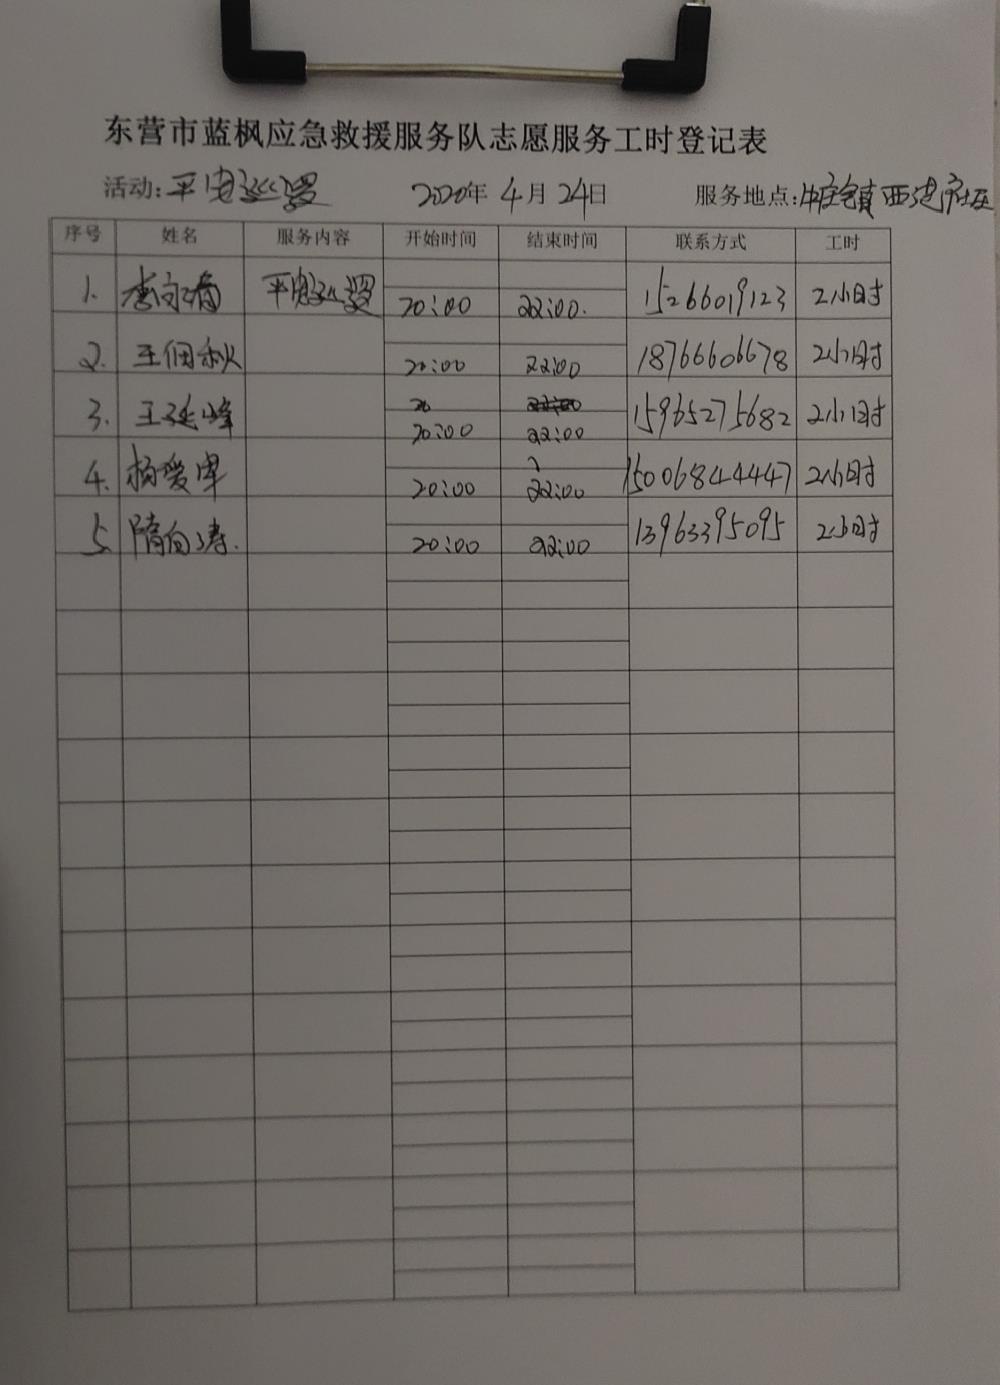 东营市蓝枫应急救援服务队志愿服务工时登记表
活动: 平安巡逻 2020年 4月 24日 服务地点: 牛庄镇西 社区
序号 姓名 服务内容 开始时间 结束时间 联系方式 工时
1. 李永春 平安巡逻 20:00 22:00. 15266019123 2小时
2. 王 秋 20:00 22:00 18766606678 2小时
3. 王延峰 20:00 22:00 15965275682 2小时
4. 杨爱军 20:00 22:00 15006844447 2小时
5. 隋向涛. 20:00 22:00 13963395095 2小时